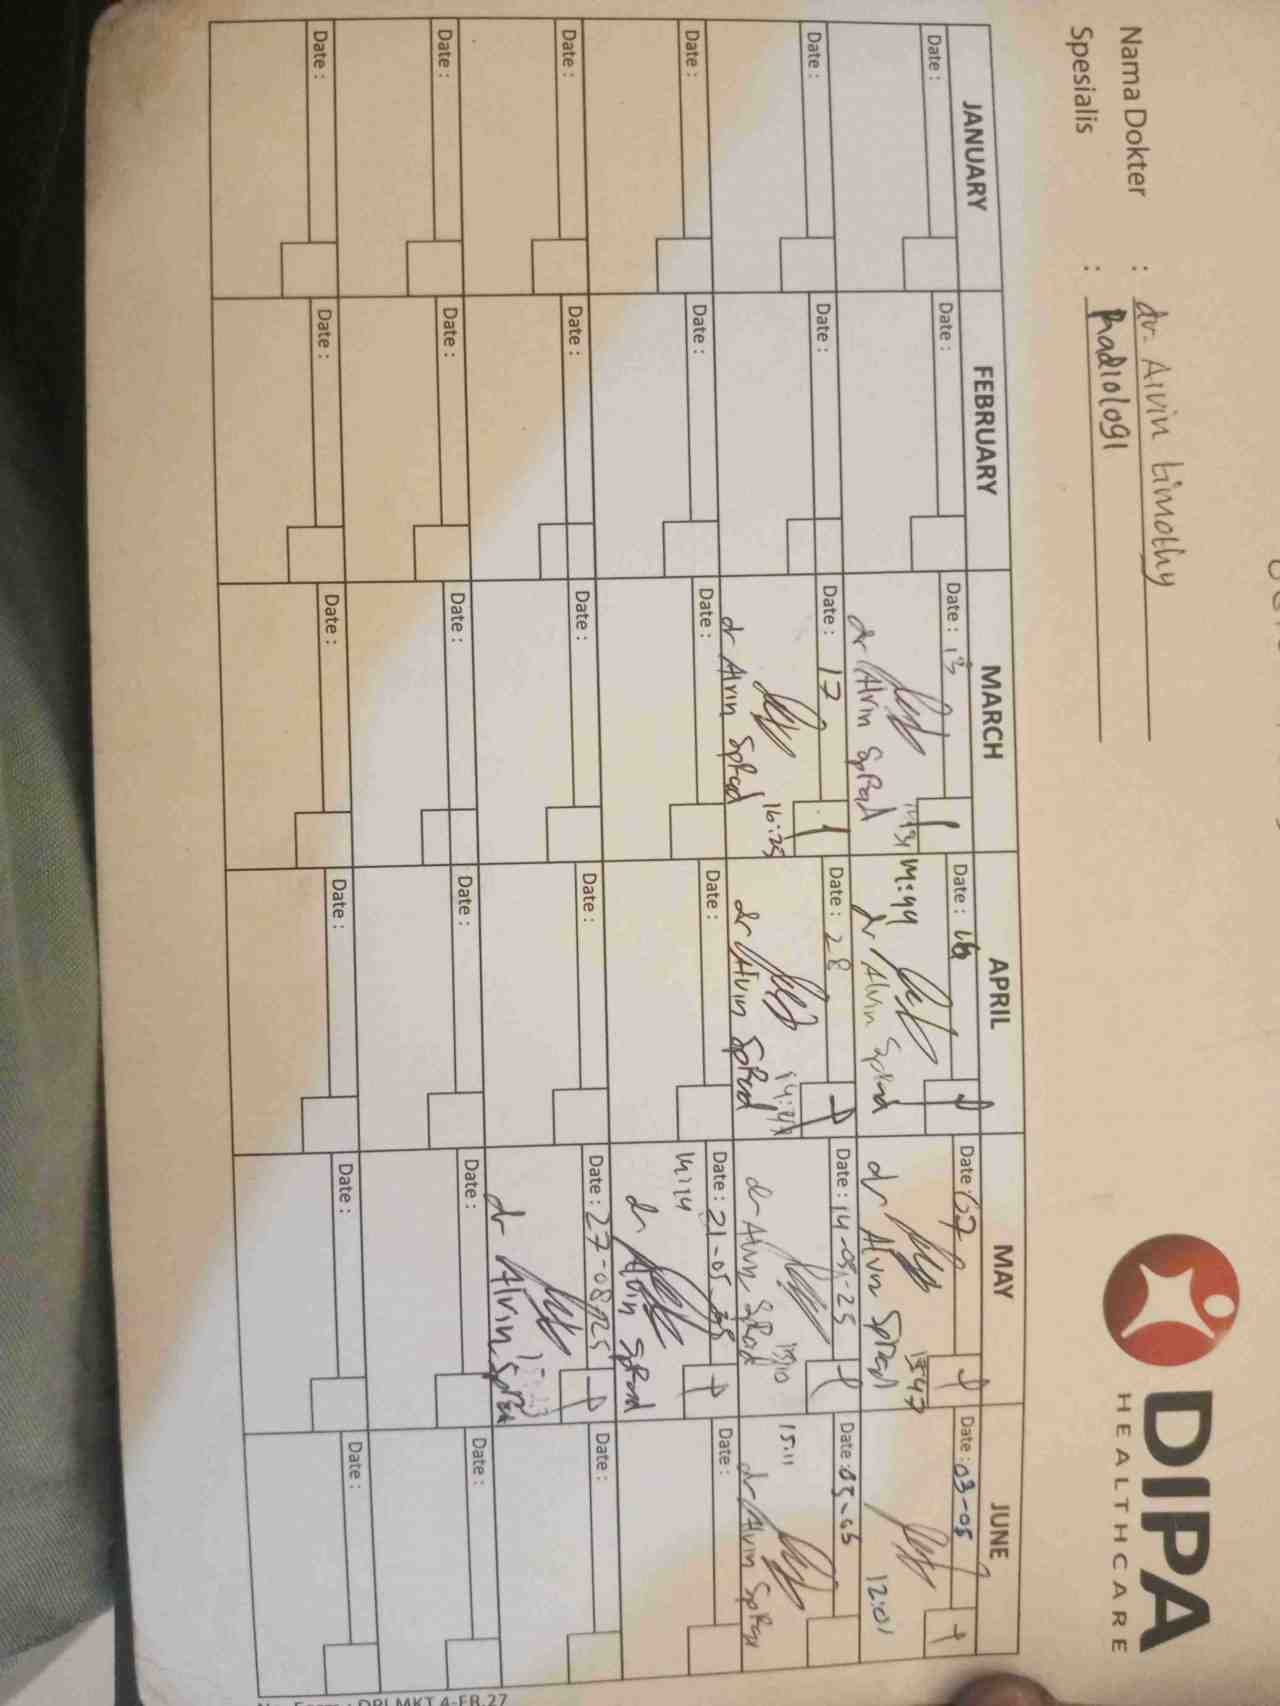 DIPA
HEALTHCARE
Nama Dokter : dr. Alvin timothy
Spesialis : Radiologi
JANUARY FEBRUARY MARCH APRIL MAY JUNE
Date : Date : Date : 13 Date : 16 Date : 07 Date : 03-05
14:44 12:01
dr Alvin SpRad dr Alvin SpRad dr Alvin SpRad 13:47
Date : Date : Date : 17 Date : 28 Date : 14-05-25 Date : 05-
16:25 15:11
dr Alvin SpRad dr Alvin SpRad dr Alvin SpRad dr Alvin SpRad
Date : Date : Date : Date : Date : 21-05-25 Date :
14:14
dr Alvin SpRad
Date : Date : Date : Date : Date : 27-08-25 Date :
dr Alvin
Date : Date : Date : Date : Date : Date :
Date : Date : Date : Date : Date : Date :
DPI.MKT.4-FR.27